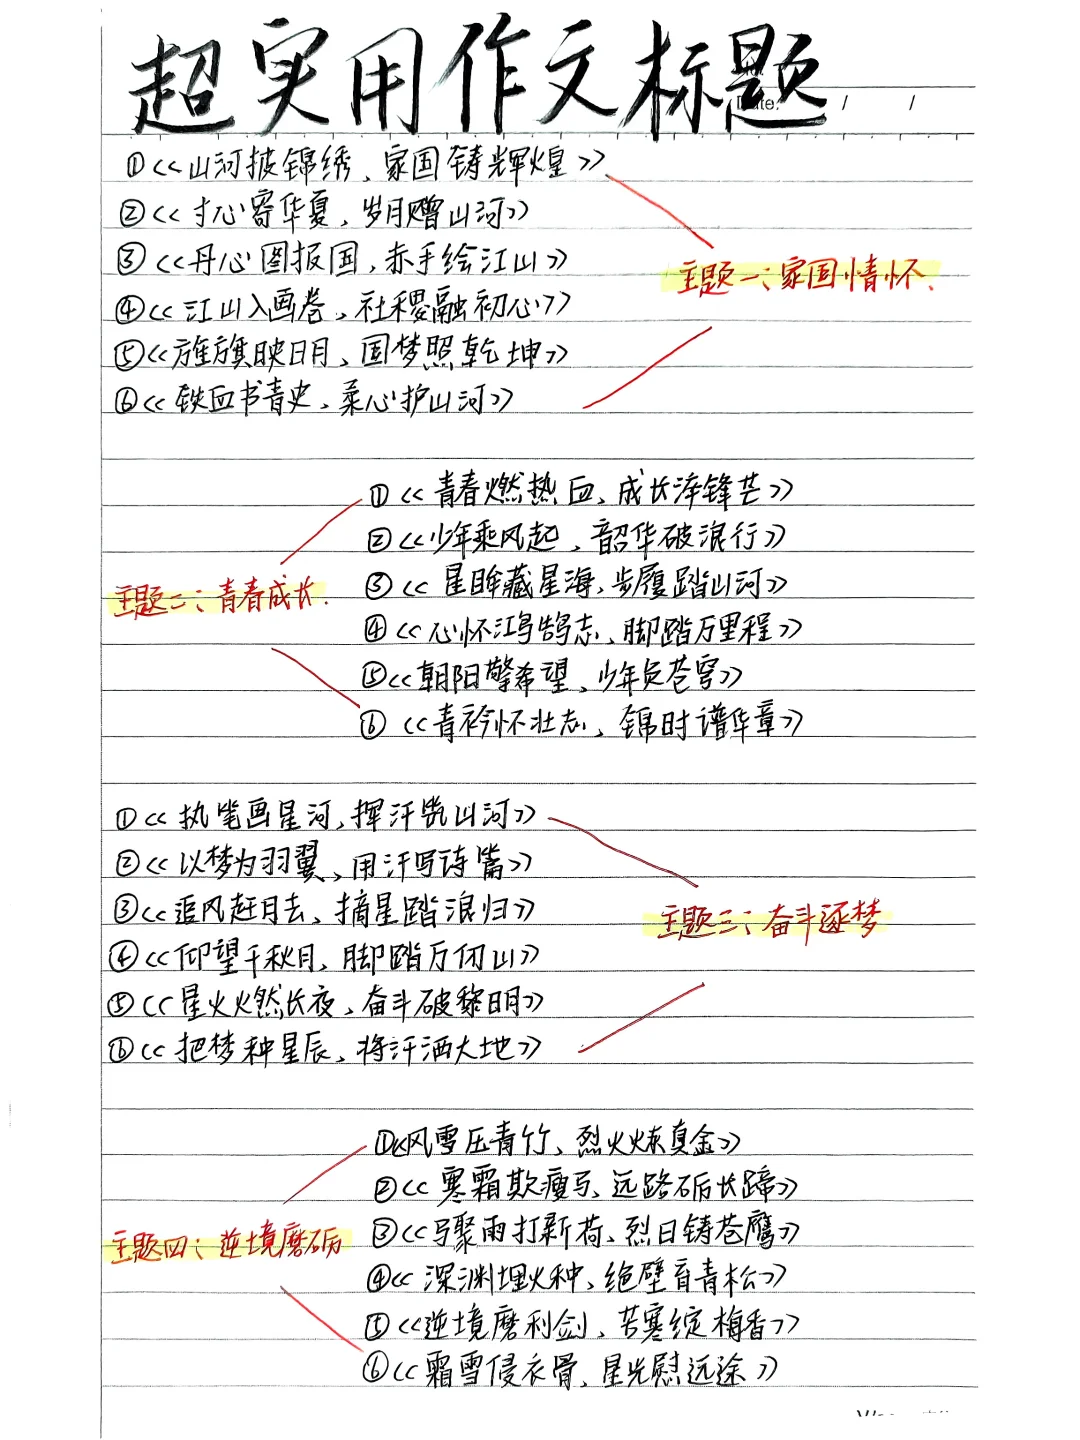 超实用作文标题
Date: / /
①《山河披锦绣、家国铸辉煌》
②《寸心寄华夏，岁月赠山河》
③《丹心图报国，赤手绘江山》
主题一：家国情怀.
④《江山入画卷，社稷融初心》
⑤《旌旗映日月，国梦照乾坤》
⑥《铁血书青史，柔心护山河》
①《青春燃热血、成长淬锋芒》
②《少年乘风起，韶华破浪行》
③《星眸藏星海，步履踏山河》
主题二：青春成长.
④《心怀鸿鹄志，脚踏万里程》
⑤《朝阳擎希望，少年负苍穹》
⑥《青衿怀壮志、锦时谱华章》
①《执笔画星河，挥汗筑山河》
②《以梦为羽翼，用汗写诗篇》
③《追风赶月去、摘星踏浪归》
主题三：奋斗逐梦
④《仰望千秋月，脚踏万仞山》
⑤《星火燃长夜，奋斗破黎明》
⑥《把梦种星辰，将汗洒大地》
①《风雪压青竹、烈火炼真金》
②《寒霜欺瘦马，远路砺长蹄》
③《骤雨打新荷、烈日铸苍鹰》
主题四：逆境磨砺
④《深渊埋火种、绝壁育青松》
⑤《逆境磨利剑、苦寒绽梅香》
⑥《霜雪侵衣骨、星光慰远途》